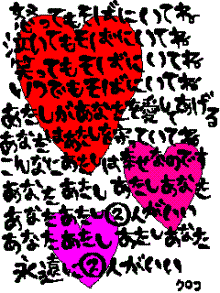 怒ってもそばにいてね
泣いてもそばにいてね
笑ってもそばにいてね
いつでもそばにいてね
あたしがあなたを愛してあげる
あなたはあたしを守っていてね
こんなにあたしは幸せなのです
あなた あたし あたし あなた
あなた あたし ②人がいい
あなた あたし あたし あなた
永遠に②人がいい
クロコ